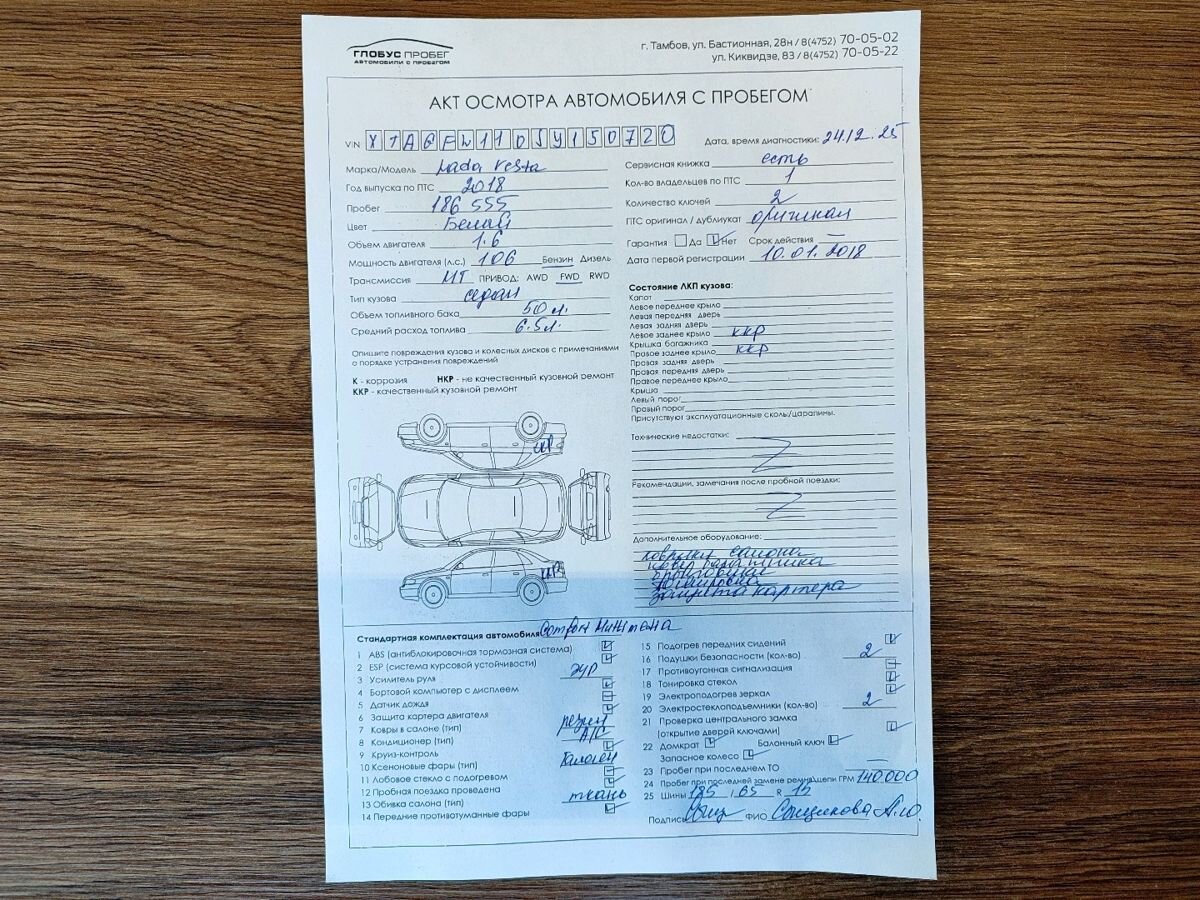 ГЛОБУС ПРОБЕГ
АВТОМОБИЛИ С ПРОБЕГОМ
г. Тамбов, ул. Бастионная, 28н / 8(4752) 70-05-02
ул. Киквидзе, 83 / 8(4752) 70-05-22
АКТ ОСМОТРА АВТОМОБИЛЯ С ПРОБЕГОМ
VIN XTAGFL110JY150720
Дата, время диагностики: 24.12.25
Марка/Модель Lada Vesta
Год выпуска по ПТС 2018
Пробег 186 555
Цвет Белый
Объем двигателя 1.6
Мощность двигателя (л.с.) 106 Бензин Дизель
Трансмиссия МТ ПРИВОД: AWD FWD RWD
Тип кузова седан
Объем топливного бака 50 л.
Средний расход топлива 6.5л.
Сервисная книжка есть
Кол-во владельцев по ПТС 1
Количество ключей 2
ПТС оригинал / дубликат оригинал
Гарантия Да Нет Срок действия —
Дата первой регистрации 10.01.2018
Опишите повреждения кузова и колесных дисков с примечаниями
о порядке устранения повреждений
К - коррозия НКР - не качественный кузовной ремонт
ККР - качественный кузовной ремонт
ККР
ККР
Состояние ЛКП кузова:
Капот
Левое переднее крыло
Левая передняя дверь
Левая задняя дверь
Левое заднее крыло ккр
Крышка багажника
Правое заднее крыло ккр
Правая задняя дверь
Правая передняя дверь
Правое переднее крыло
Крыша
Левый порог
Правый порог
Присутствуют эксплуатационные сколы/царапины.
Технические недостатки:
Рекомендации, замечания после пробной поездки:
Дополнительное оборудование:
коврики салона
багажника
защита картера
Стандартная комплектация автомобиля
1 ABS (антиблокировочная тормозная система)
2 ESP (система курсовой устойчивости)
3 Усилитель руля ЭУР
4 Бортовой компьютер с дисплеем
5 Датчик дождя
6 Защита картера двигателя
7 Ковры в салоне (тип) резин
8 Кондиционер (тип) А/С
9 Круиз-контроль
10 Ксеноновые фары (тип) Галоген
11 Лобовое стекло с подогревом
12 Пробная поездка проведена
13 Обивка салона (тип) ткань
14 Передние противотуманные фары
15 Подогрев передних сидений
16 Подушки безопасности (кол-во) 2
17 Противоугонная сигнализация
18 Тонировка стекол
19 Электроподогрев зеркал
20 Электростеклоподъемники (кол-во) 2
21 Проверка центрального замка
(открытие дверей ключами)
22 Домкрат Балонный ключ
Запасное колесо
23 Пробег при последнем ТО —
24 Пробег при последней замене ремня/цепи ГРМ 140 000
25 Шины 185 / 65 R 15
Подпись ФИО А.Ю.